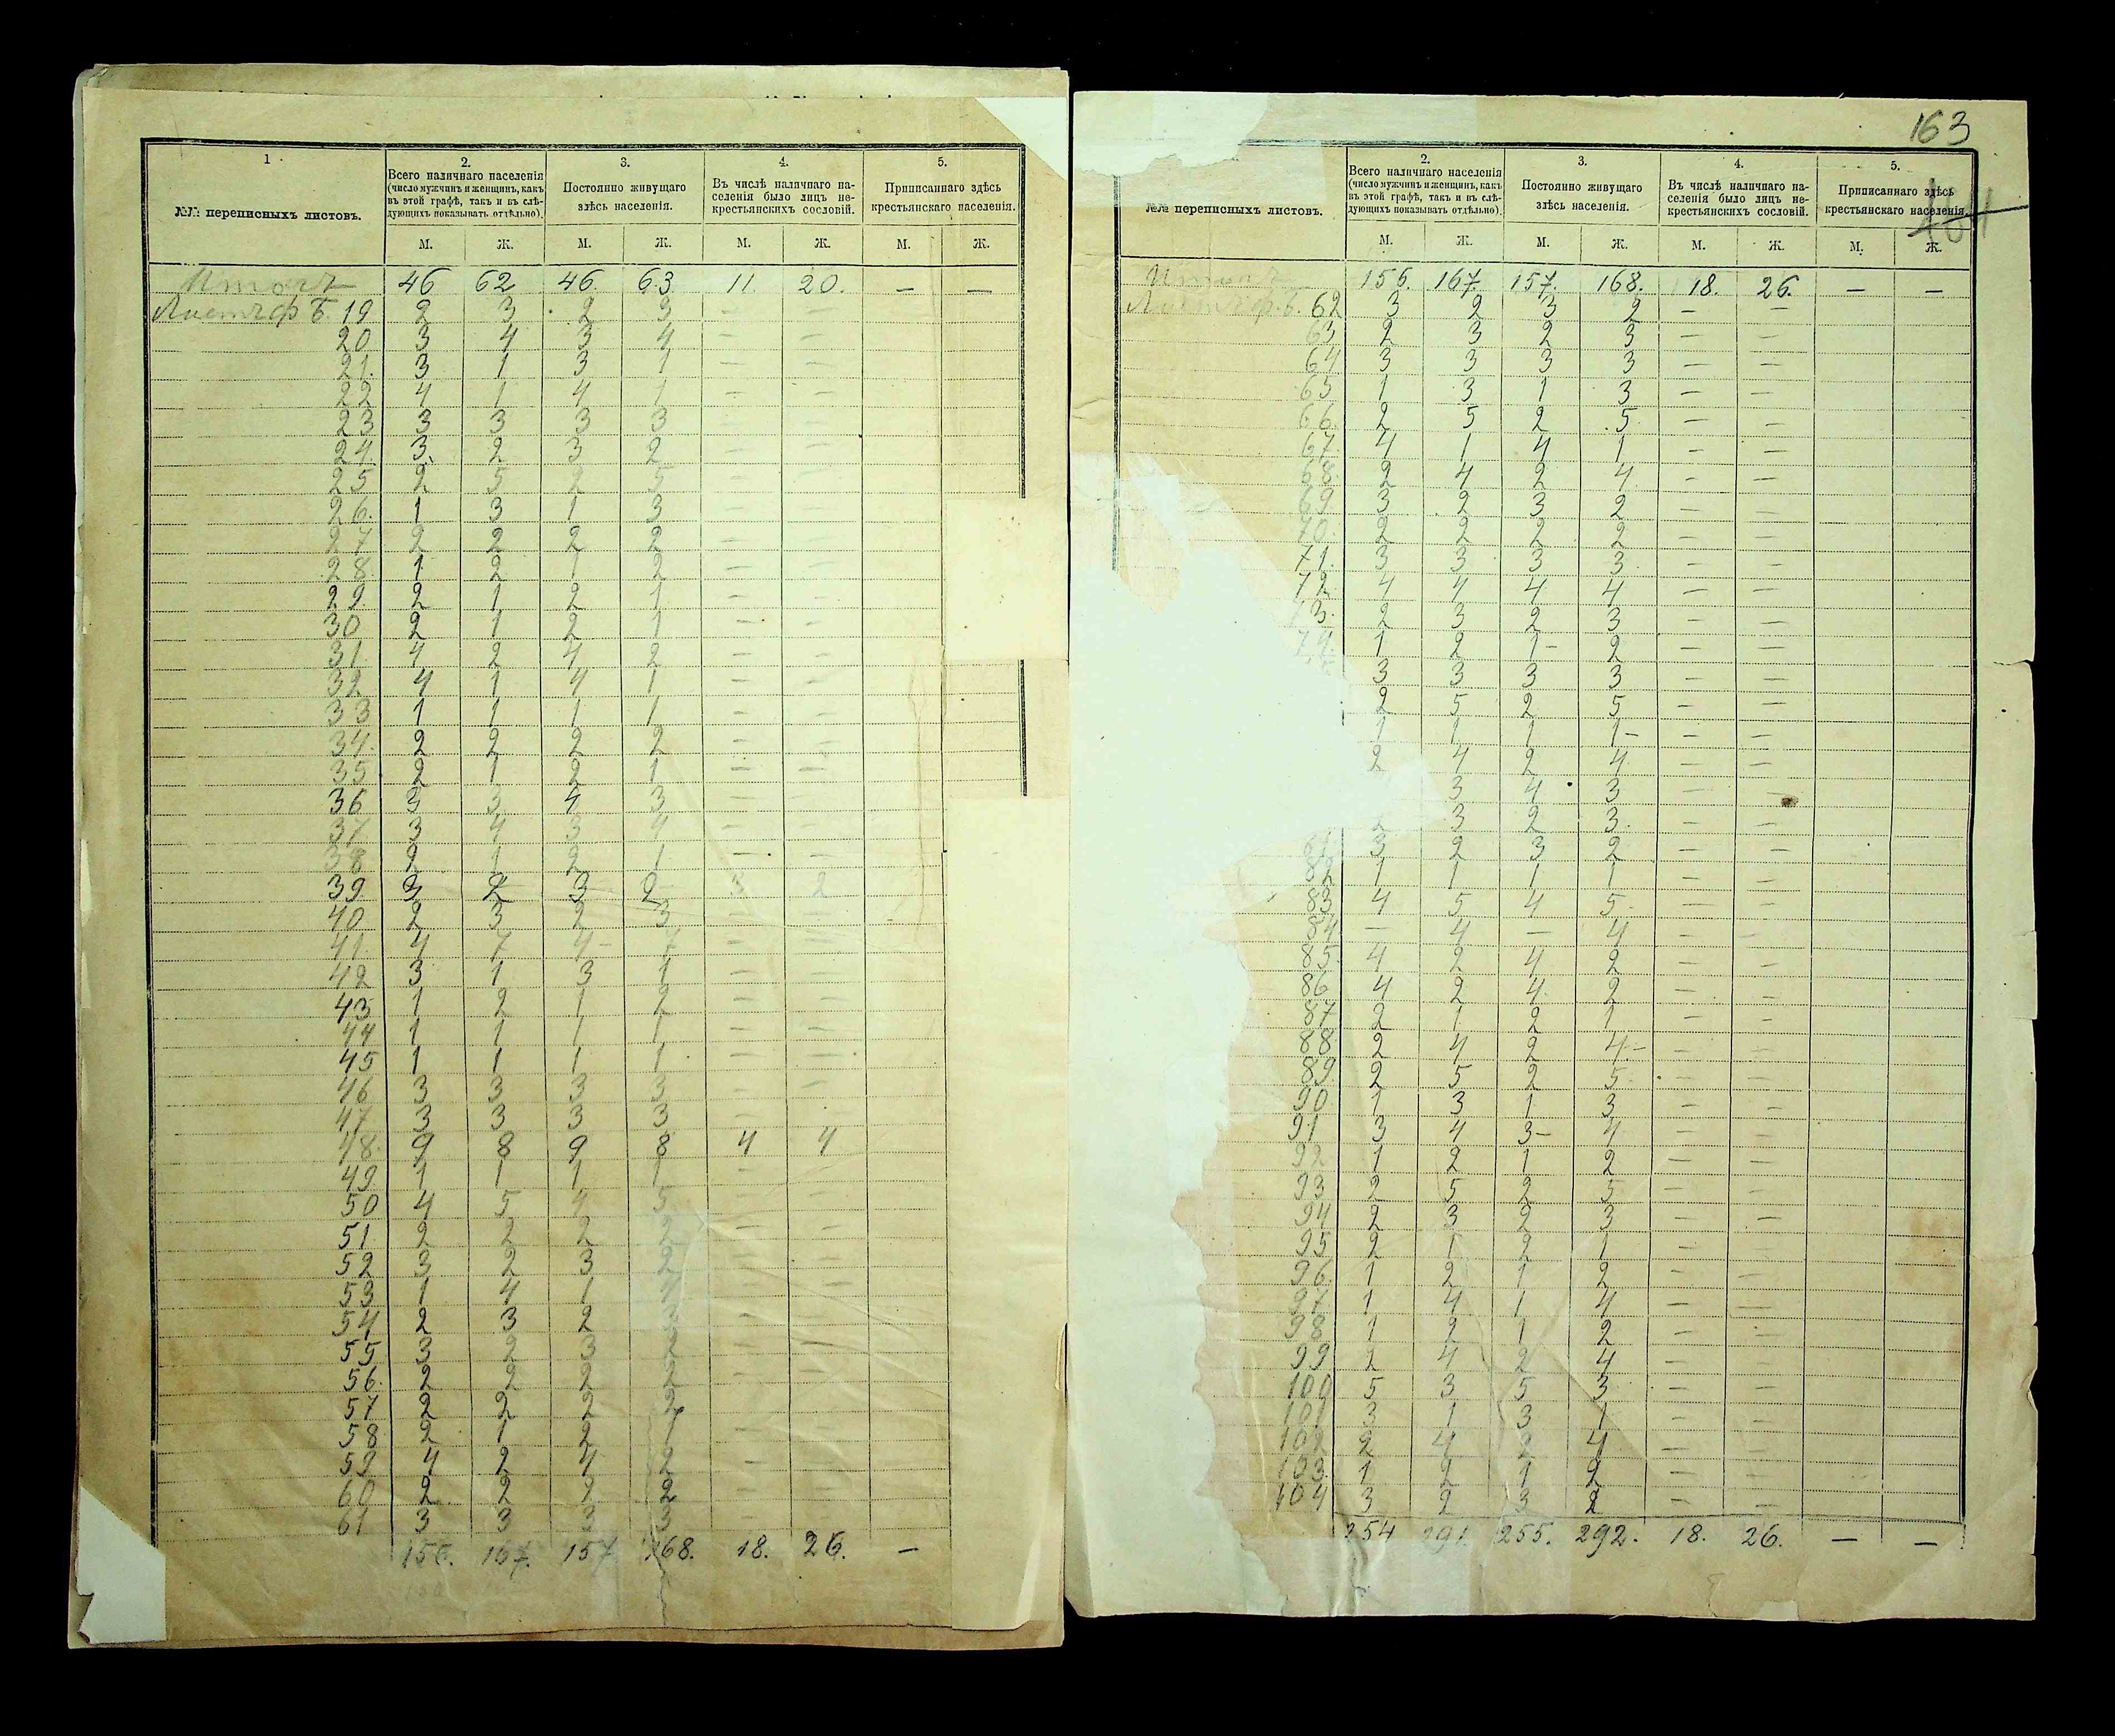 1.
2.
Всего наличнаго населенія
(число мужчинъ и женщинъ, какъ
въ этой графѣ, такъ и въ слѣ-
дующихъ показывать отдѣльно).
3.
Постоянно живущаго
здѣсь населенія.
4.
Въ числѣ наличнаго на-
селенія было лицъ не-
крестьянскихъ сословій.
5.
Приписаннаго здѣсь
крестьянскаго населенія.
№№ переписныхъ листовъ.
М. Ж. М. Ж. М. Ж. М. Ж.
Итогъ 46 62 46 63 11 20. — —
Листъ ф Б. 19 2 3 2 3 — —
20 3 4 3 4 — —
21. 3 1 3 1 — —
22 4 1 4 1 — —
23 3 3 3 3 — —
24. 3 2 3 2 — —
25 2 5 2 5 — —
26. 1 3 1 3 — —
27 2 2 2 2 — —
28 1 2 1 2 — —
29. 2 1 2 1 — —
30 2 1 2 1 — —
31. 4 2 4 2 — —
32 4 1 4 1 — —
33 1 1 1 1 — —
34. 2 2 2 2 — —
35 2 1 2 1 — —
36 3 3 4 3 — —
37. 3 4 3 4 — —
38 2 1 2 1 — —
39 3 2 3 2 3 2
40 2 3 2 3 — —
41. 4 7 4 7 — —
42 3 1 3 1 — —
43 1 2 1 2 — —
44 1 1 1 1 — —
45 1 1 1 1 — —
46 3 3 3 3 — —
47 3 3 3 3 — —
48. 9 8 9 8 4 4
49 1 1 1 1 — —
50 4 5 4 5 — —
51 2 2 2 2 — —
52 3 2 3 2 — —
53 1 4 1 4 — —
54 2 3 2 3 — —
55 3 2 3 2 — —
56. 2 2 2 2 — —
57 2 2 2 2 — —
58 2 1 2 1 — —
59 4 2 4 2 — —
60 2 2 2 2 — —
61 3 3 3 3 — —
156. 167. 157 168. 18. 26. —
163
2.
Всего наличнаго населенія
(число мужчинъ и женщинъ, какъ
въ этой графѣ, такъ и въ слѣ-
дующихъ показывать отдѣльно).
3.
Постоянно живущаго
здѣсь населенія.
4.
Въ числѣ наличнаго на-
селенія было лицъ не-
крестьянскихъ сословій.
5.
Приписаннаго здѣсь
крестьянскаго населенія.
№№ переписныхъ листовъ.
М. Ж. М. Ж. М. Ж. М. Ж.
Итогъ 156. 167. 157. 168. 18. 26. — —
Листъ ф. Б. 62 3 2 3 2 — —
63 2 3 2 3 — —
64 3 3 3 3 — —
65 1 3 1 3 — —
66. 2 5 2 5 — —
67. 4 1 4 1 — —
68. 2 4 2 4 — —
69 3 2 3 2 — —
70. 2 2 2 2 — —
71. 3 3 3 3 — —
72. 4 4 4 4 — —
73. 2 3 2 3 — —
74. 1 2 1 2 — —
3 3 3 3 — —
2 5 2 5 — —
1 1 1 1 — —
2 4 2 4 — —
3 4 3 — —
2 3 2 3. — —
81 3 2 3 2 — —
82 1 1 1 1 — —
83 4 5 4 5 — —
84 — 4 — 4 — —
85 4 2 4 2 — —
86 4 2 4 2 — —
87 2 1 2 1 — —
88 2 4 2 4 — —
89. 2 5 2 5 — —
90 1 3 1 3 — —
91 3 4 3 4 — —
92 1 2 1 2 — —
93 2 5 2 5 — —
94 2 3 2 3 — —
95 2 1 2 1 — —
96. 1 2 1 2 — —
97 1 4 1 4 — —
98 1 2 1 2 — —
99 2 4 2 4 —
100 5 3 5 3 — —
101 3 1 3 1 — —
102 2 4 2 4 — —
103. 1 2 1 2 — —
104 3 2 3 2 — —
254 291. 255. 292. 18. 26. — —